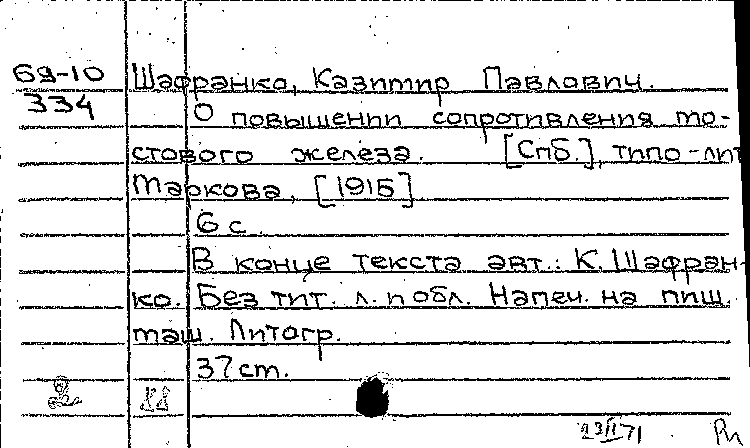 69-10 Шафранко, Казимир Павлович.
334 О повышении сопротивления мо-
стового железа. [Спб.], типо-лит
Маркова, [1915]
6 с.
В конце текста авт.: К. Шафран-
ко. Без тит. л. и обл. Напеч. на пиш.
маш. Литогр.
37 см.
2 88
23/II 71